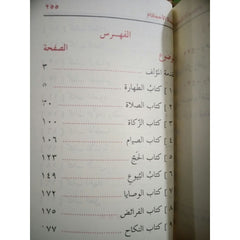 ٢٥٥
الفهـرس
الصفحة
المؤلف ٣
١] كتاب الطهارة ٥
٢] كتاب الصلاة
٣] كتاب الزكاة ١٠٠
٤] كتاب الصيام ١٠٦
٥] كتاب الحج ١٢٣
٦] كتاب البيوع ١٤٩
٧] كتاب الوصايا ١٧٢
٨] كتاب الفرائض ١٧٦
٩] كتاب النكاح ١٧٧